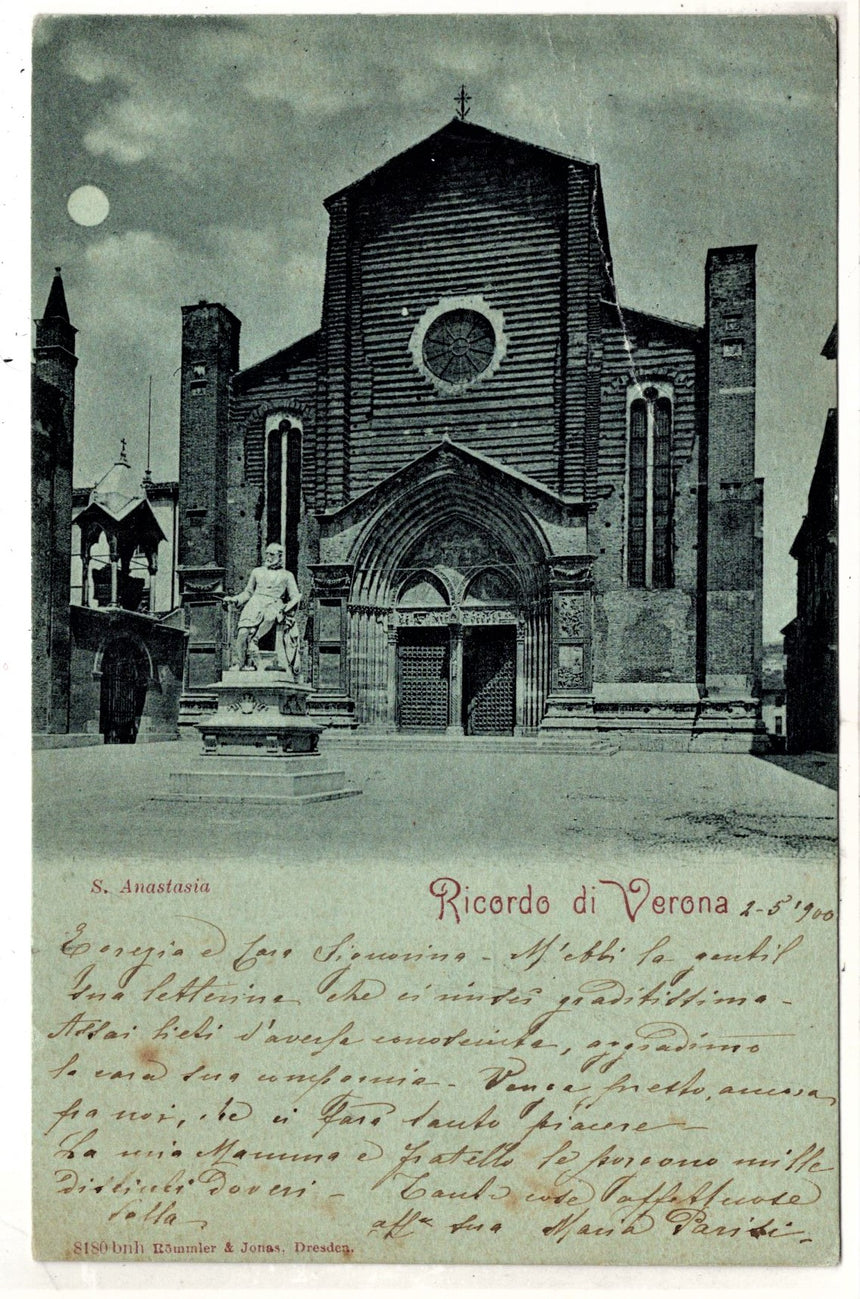 S. Anastasia
Ricordo di Verona 2-5 '900
Egregia e Cara Signorina - M'ebbi la gentil
sua letterina che ci riuscì graditissima -
Assai lieti d'averla conosciuta, aggradimmo
la cara sua compagnia - Venga presto, ancora
fra noi, che ci farà tanto piacere -
La mia Mamma e fratello le porgono mille
distinti doveri - Tante cose affettuose
dalla aff.ma sua Maria Parisi -
8180 bnh Römmler & Jonas, Dresden.